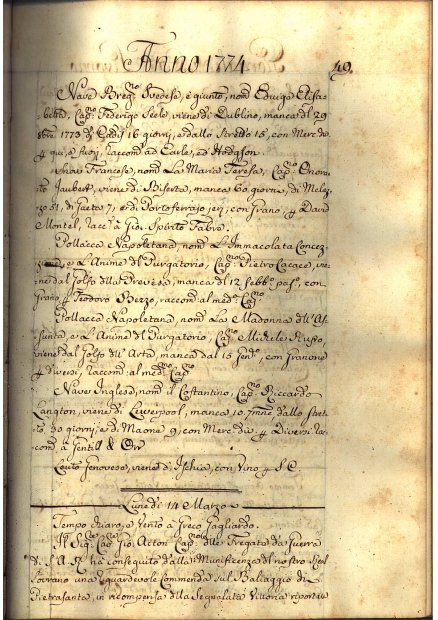 Anno 1774
49.
Nave Breg.no Svedese, è giunto, nom.o Edviga Elisa-
betta, Cap.no Federigo Seele, viene di Dublino, manca dl 29
8bre 1773 di Cadis 16 giorni, e dallo Stretto 15, con Merc.
p qui, e fuori, raccom.o ad Earle, ed Hodgson.
Francese, nom.o La Maria Teresa, Cap.no Onora-
to Jaubert, viene di Biserta, manca 60 giorni, di
51, di Gaeta 7, e di Portoferrajo jeri, con Grano p David
Montel, racc.o a Gio: Spirito Fabre.
Pollacca Napoletana, nom.a L'Immacolata Concez-
zione, e L'Anime dl Purgatorio, Cap.no Pietro Cacace, vie-
ne dal Golfo dlla Prevesa, manca dl 12 Febb.o pas.o, con
Grano p Teodoro Rezzo, raccom.o al med.o Cap.no
Pollacca Napoletana, nom.a La Madonna dll'As-
sunta, e L'Anime dl Purgatorio, Cap.no Michele Russo,
viene dal Golfo dll'Arta, manca dal 15 Gen.o, con granone
p diversi, raccom.o al med.o Cap.no
Nave Inglese, nom.a il Costantino, Cap.no Riccardo
Langton, viene di Liverpool, manca 10 7mne dallo Stret-
to 30 giorni, e di Maone 9, con Merc. div.e p Diversi, rac-
com.o a Gentil & Orr
Leuto Genovese, viene d'Ischia, con Vino p S. C.
Lunedì 14 Marzo
Tempo chiaro, e vento a Greco Gagliardo.
Il Sig.re Cav.re Gio: Acton Cap.no dlle Fregate da Guerra
di S. A. R. ha conseguito dalla Munificenza dl nostro Real
Sovrano una ragguardevole Commenda sul Baliaggio di
Pietrasanta, in ricompensa dlla Segnalata Vittoria riporta-